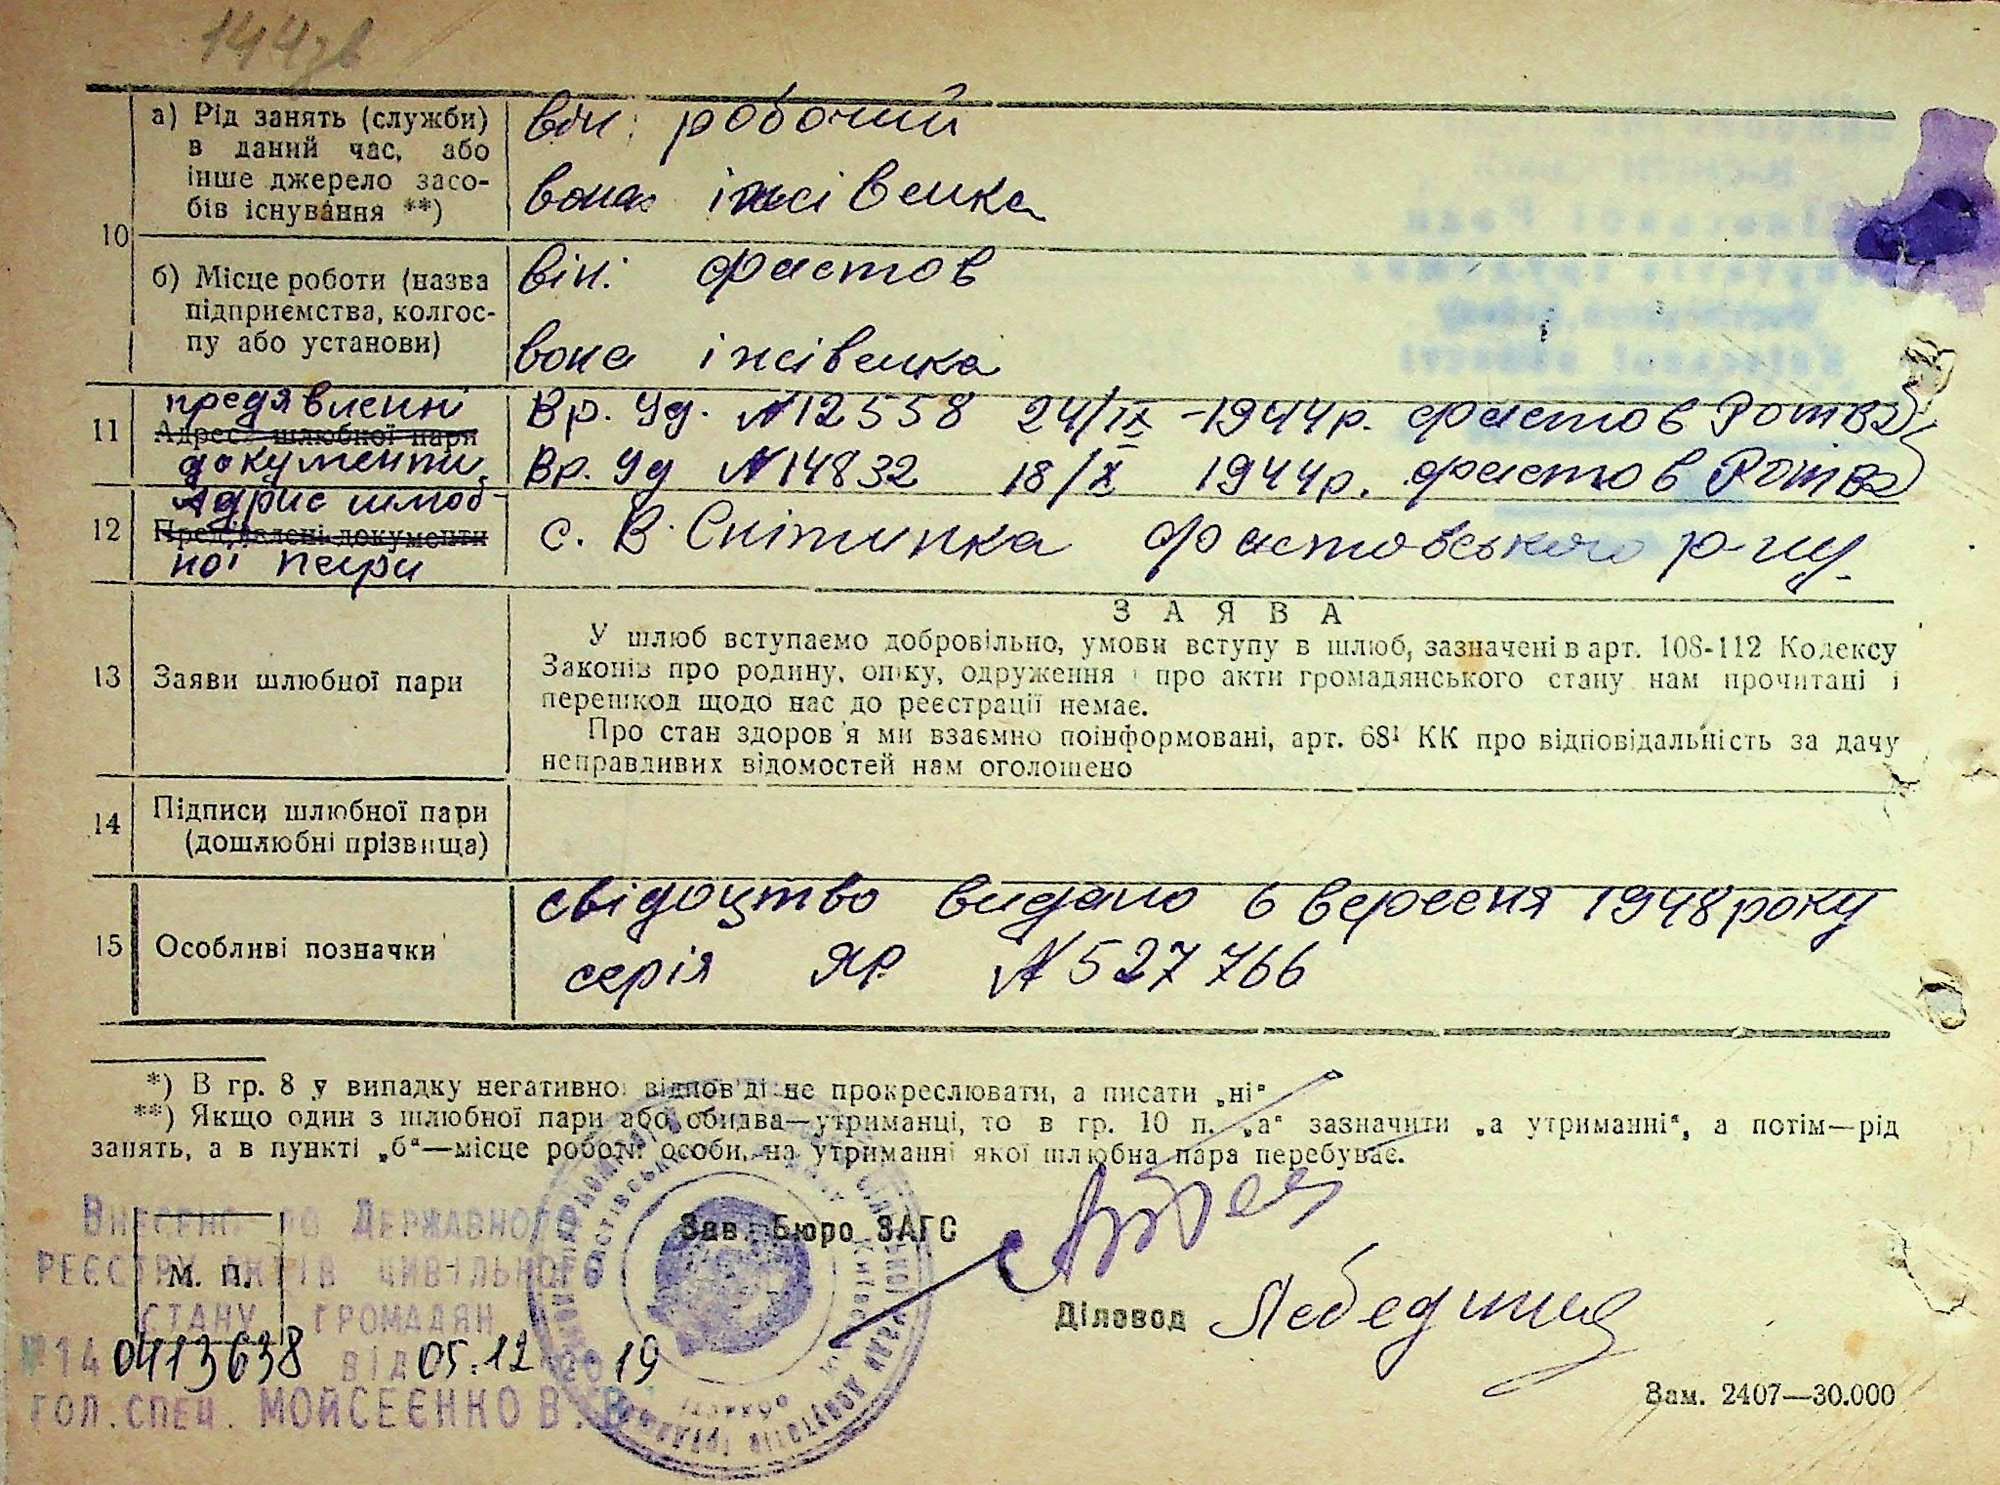 144зв
10
а) Рід занять (служби)
в даний час, або
інше джерело засо-
бів існування **)
він: робочий
вона: іжівенка
б) Місце роботи (назва
підприємства, колгос-
пу або установи)
він: Фастов
вона іжівенка
11
предявленні
Адреса шлюбної пари
документи
Вр. Уд. №12558 24/IX -1944р. Фастов
Вр. Уд №14832 18/X 1944р. Фастов
12
Адрис шлюб-
Пред'явлені документи
ної пари
с. В. Снітинка Фастовського р-ну.
13
Заяви шлюбної пари
ЗАЯВА
У шлюб вступаємо добровільно, умови вступу в шлюб, зазначені в арт. 108-112 Кодексу
Законів про родину, опіку, одруження і про акти громадянського стану нам прочитані і
перешкод щодо нас до реєстрації немає.
Про стан здоров'я ми взаємно поінформовані, арт. 68¹ КК про відповідальність за дачу
неправдивих відомостей нам оголошено
14
Підписи шлюбної пари
(дошлюбні прізвища)
15
Особливі позначки
свідоцтво видано 6 вересня 1948 року
серія ЯР № 527766
*) В гр. 8 у випадку негативної відпов'ді не прокреслювати, а писати „ні“
**) Якщо один з шлюбної пари або обидва—утриманці, то в гр. 10 п. „а“ зазначити „а утриманні“, а потім—рід
занять, а в пункті „б“—місце роботи особи, на утриманні якої шлюбна пара перебуває.
Зав. Бюро ЗАГС
М. П.
Діловод Лебедина
Внесено до Державного
реєстру актів цивільного
стану громадян
№14 0413638 від 05.12 2019
гол.спец. Мойсеєнко В.В.
Зам. 2407—30.000